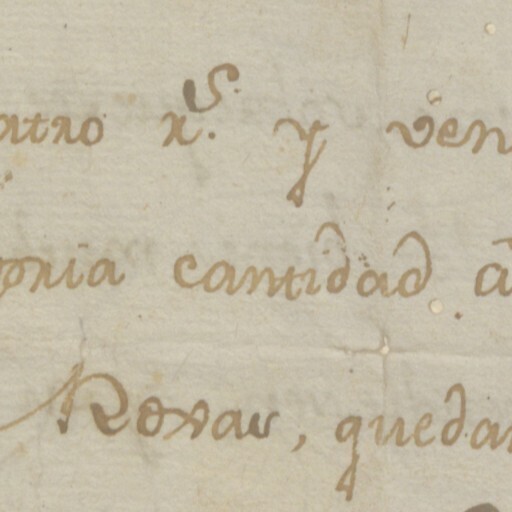 atro r.^s y ven
opria cantidad á
Roxas, quedan